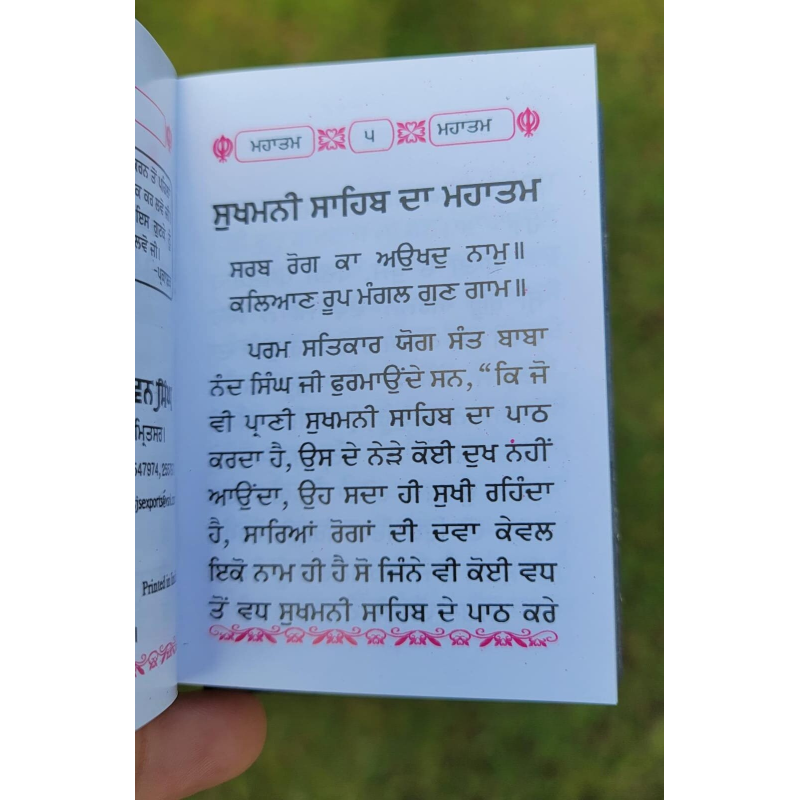 ਕ ਕਰ ਲਵੋ ਜੀ
ਲਵੋ ਜੀ।
ਮ੍ਰਿਤਸਰ।
Printed in
ਮਹਾਤਮ ੫ ਮਹਾਤਮ
ਸੁਖਮਨੀ ਸਾਹਿਬ ਦਾ ਮਹਾਤਮ
ਸਰਬ ਰੋਗ ਕਾ ਅਉਖਦੁ ਨਾਮੁ॥
ਕਲਿਆਣ ਰੂਪ ਮੰਗਲ ਗੁਣ ਗਾਮ॥
ਪਰਮ ਸਤਿਕਾਰ ਯੋਗ ਸੰਤ ਬਾਬਾ
ਨੰਦ ਸਿੰਘ ਜੀ ਫੁਰਮਾਉਂਦੇ ਸਨ, “ਕਿ ਜੋ
ਵੀ ਪ੍ਰਾਣੀ ਸੁਖਮਨੀ ਸਾਹਿਬ ਦਾ ਪਾਠ
ਕਰਦਾ ਹੈ, ਉਸ ਦੇ ਨੇੜੇ ਕੋਈ ਦੁਖ ਨਹੀਂ
ਆਉਂਦਾ, ਉਹ ਸਦਾ ਹੀ ਸੁਖੀ ਰਹਿੰਦਾ
ਹੈ, ਸਾਰਿਆਂ ਰੋਗਾਂ ਦੀ ਦਵਾ ਕੇਵਲ
ਇਕੋ ਨਾਮ ਹੀ ਹੈ ਸੋ ਜਿੰਨੇ ਵੀ ਕੋਈ ਵਧ
ਤੋਂ ਵਧ ਸੁਖਮਨੀ ਸਾਹਿਬ ਦੇ ਪਾਠ ਕਰੇ